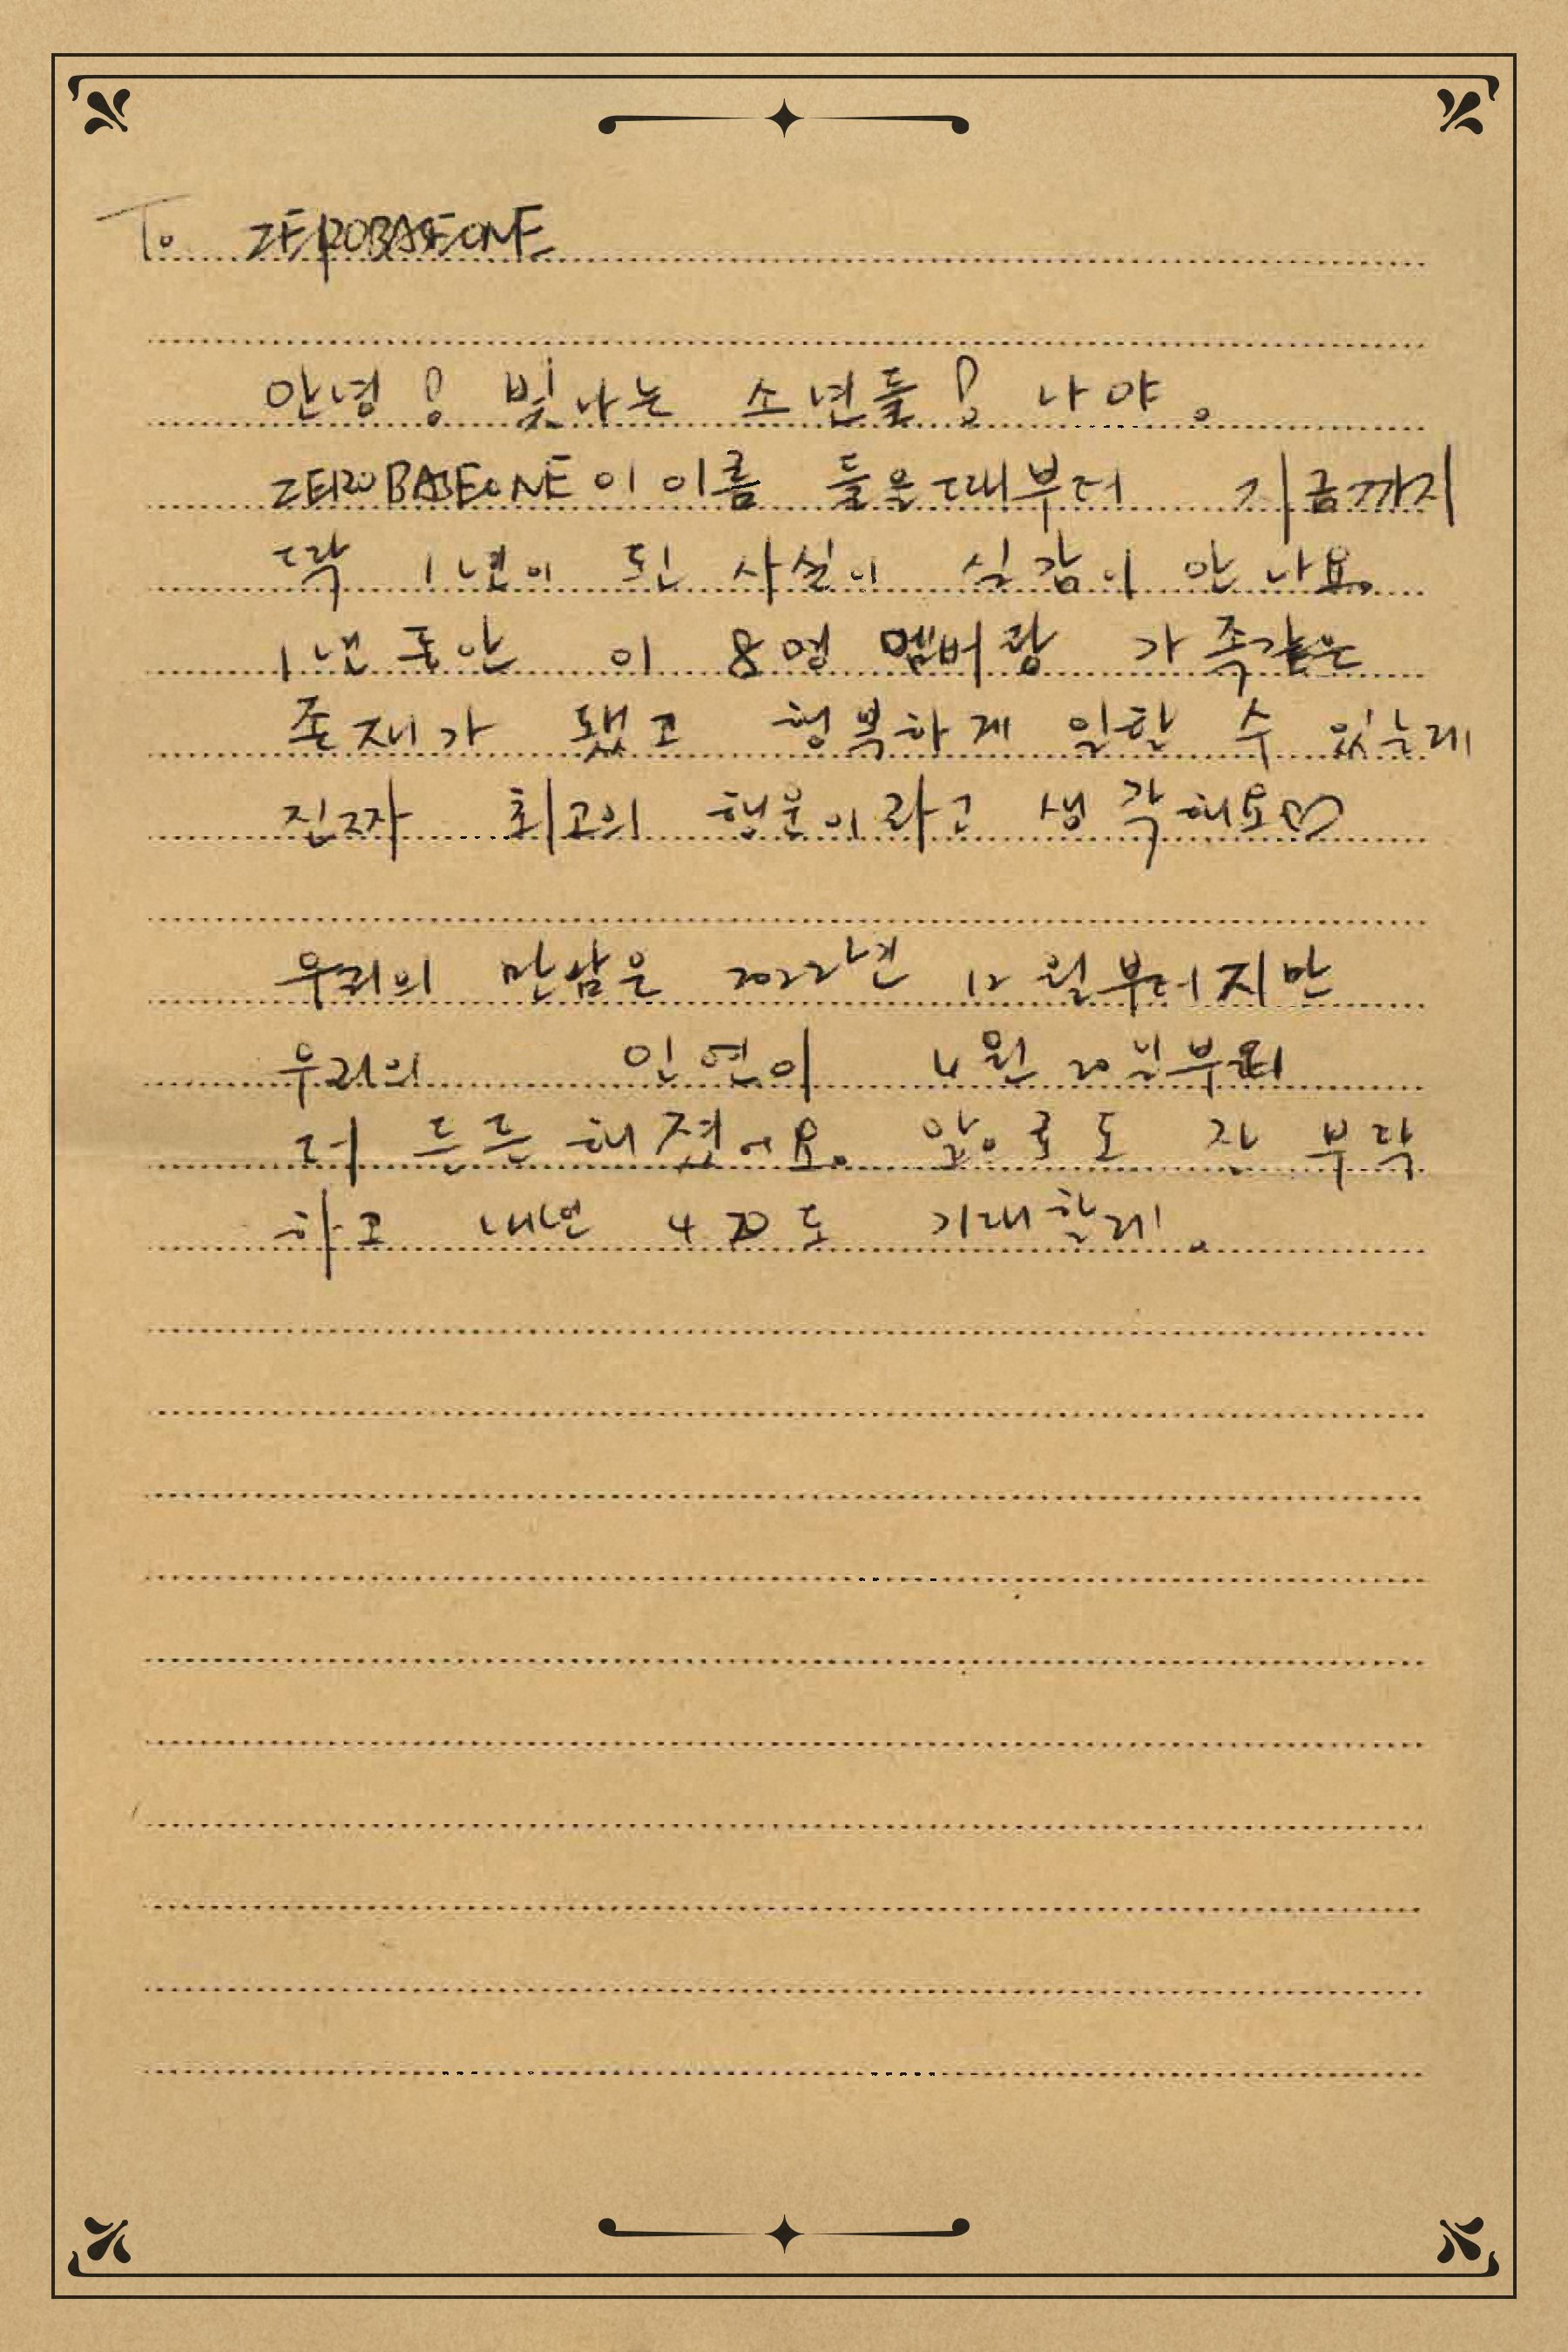 To ZEROBASEONE
안녕! 빛나는 소년들! 나야.
ZEROBASEONE이 이름 들은때부터 지금까지
딱 1년이 된 사실이 실감이 안 나요.
1년 동안 이 8명 멤버랑 가족같은
존재가 됐고 행복하게 일할 수 있는데
진짜 최고의 행운이라고 생각해요♡
우리의 만남은 2022년 12월부터지만
우리의 인연이 4월 20일부터
더 든든해졌어요. 앞으로도 잘 부탁
하고 내년 420도 기대할게.